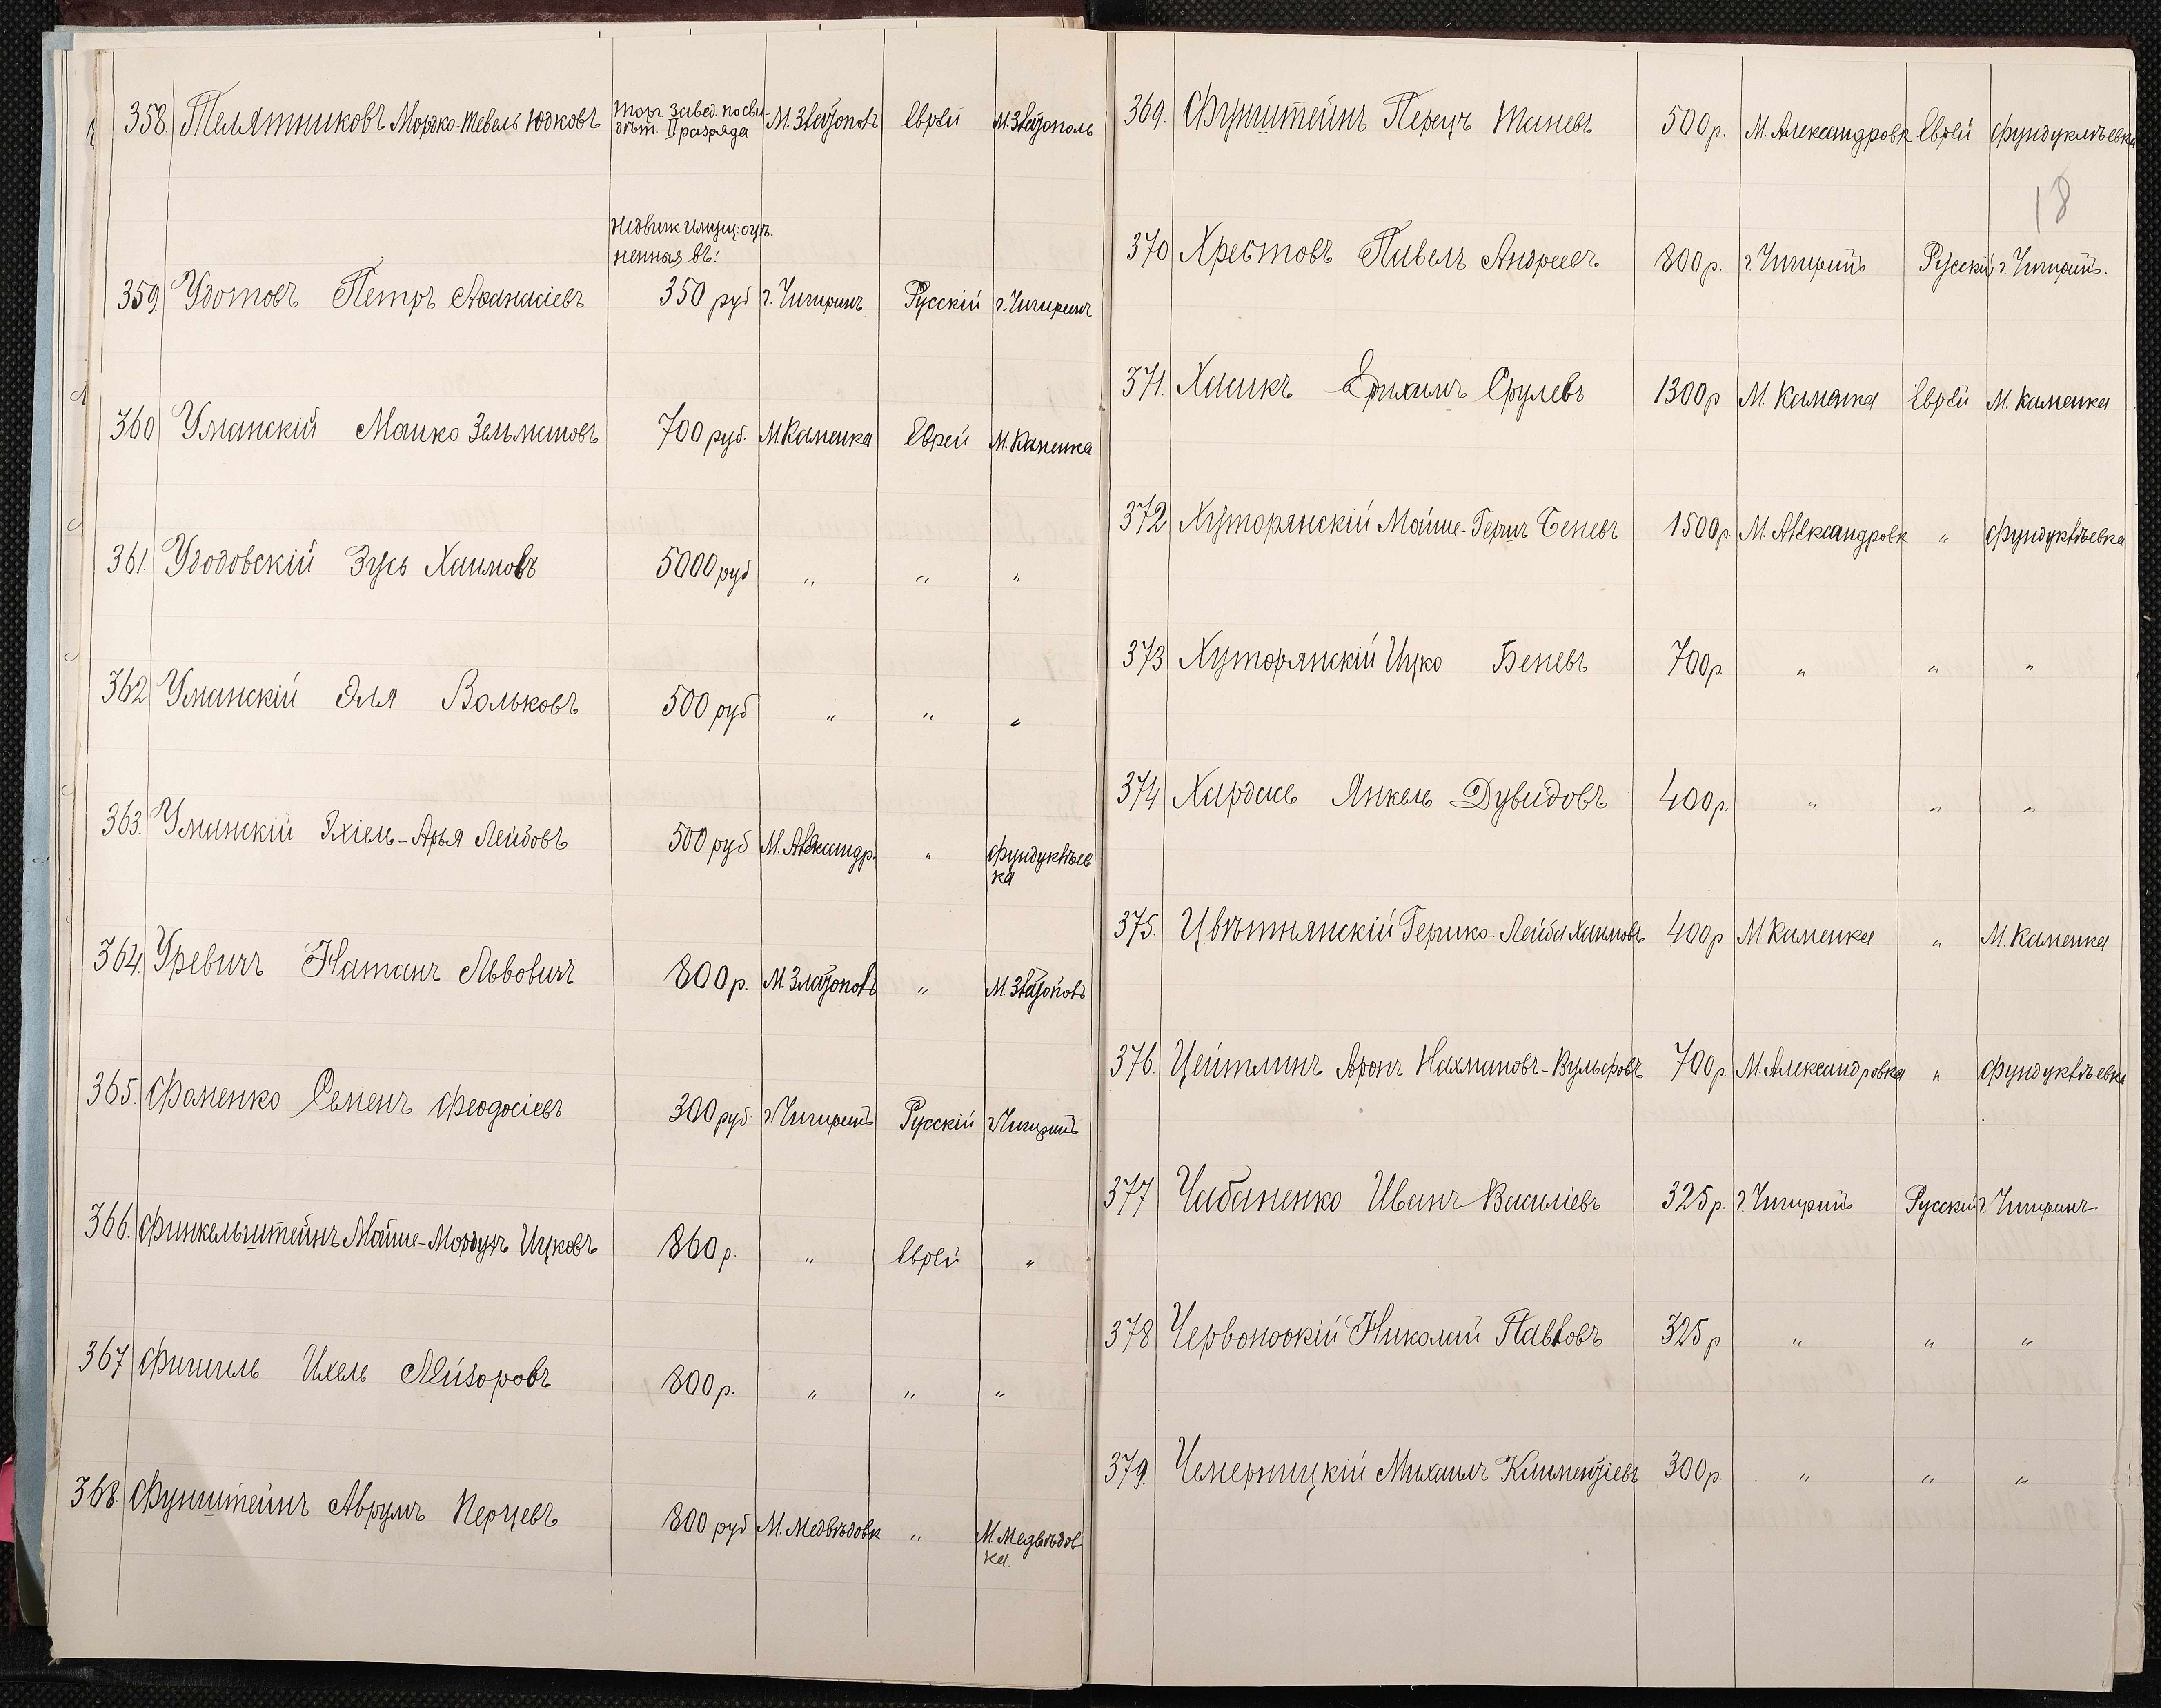 358. Телятниковъ Мордко-Тевель Юдковъ Торг. завед. по сви- М. Златополь Еврей М. Златополь
дѣт. II разряда
Недвиж имущ: оцѣ-
ненная въ:
359. Удотовъ Петръ Афанасіевъ 350 руб г. Чигиринъ Русскій г. Чигиринъ
360 Уманскій Машко Зельмановъ 700 руб. М Каменка Еврей М. Каменка
361. Удодовскій Зусь Хаимовъ 5000 руб " " "
362 Уманскій Эля Вольковъ 500 руб " " "
363. Уманскій Эхіель-Арья Лейбовъ 500 руб М. Александр. " Фундуклѣев
ка
364. Уревичъ Натанъ Львовичъ 800 р. М. Златополь " М. Златополь
365. Фоменко Семенъ Феодосіевъ 300 руб г. Чигиринъ Русскій г. Чигиринъ
366. Финкельштейнъ Мойше-Мордухъ Ицковъ 860 р. " Еврей "
367 Фишель Ихель Лейзоровъ 800 р. " " "
368. Фунштейнъ Аврумъ Перцевъ 800 руб М. Медвѣдовк " М. Медвѣдов
ка.
18
369. Фунштейнъ Перецъ Таневъ 500 р. М. Александровк Еврей Фундуклѣевка
370 Хрестовъ Павелъ Андреевъ 800 р. г. Чигиринъ Русскій г Чигиринъ.
371. Хаикъ Ерихимъ Срулевъ 1300 р М. Каменка Еврей М. Каменка
372 Хуторянскій Мойше-Гершъ Беневъ 1500 р. М. Александровк " Фундуклѣевка
373 Хуторянскій Ицко Беневъ 700 р. " " "
374 Хардасъ Янкель Дувидовъ 400 р. " " "
375. Цвѣтнянскій Гершко-Лейба Хаимовъ 400 р М. Каменка " М. Каменка
376. Цейтлинъ Аронъ Нахмановъ-Вульфовъ 700 р М. Александровка " Фундуклѣевка
377 Чабаненко Иванъ Василіевъ 325 р. г. Чигиринъ Русскій г. Чигиринъ
378 Червоноокій Николай Павловъ 325 р " " "
379. Чемерницкій Михаилъ Климентіевъ 300 р. " " "